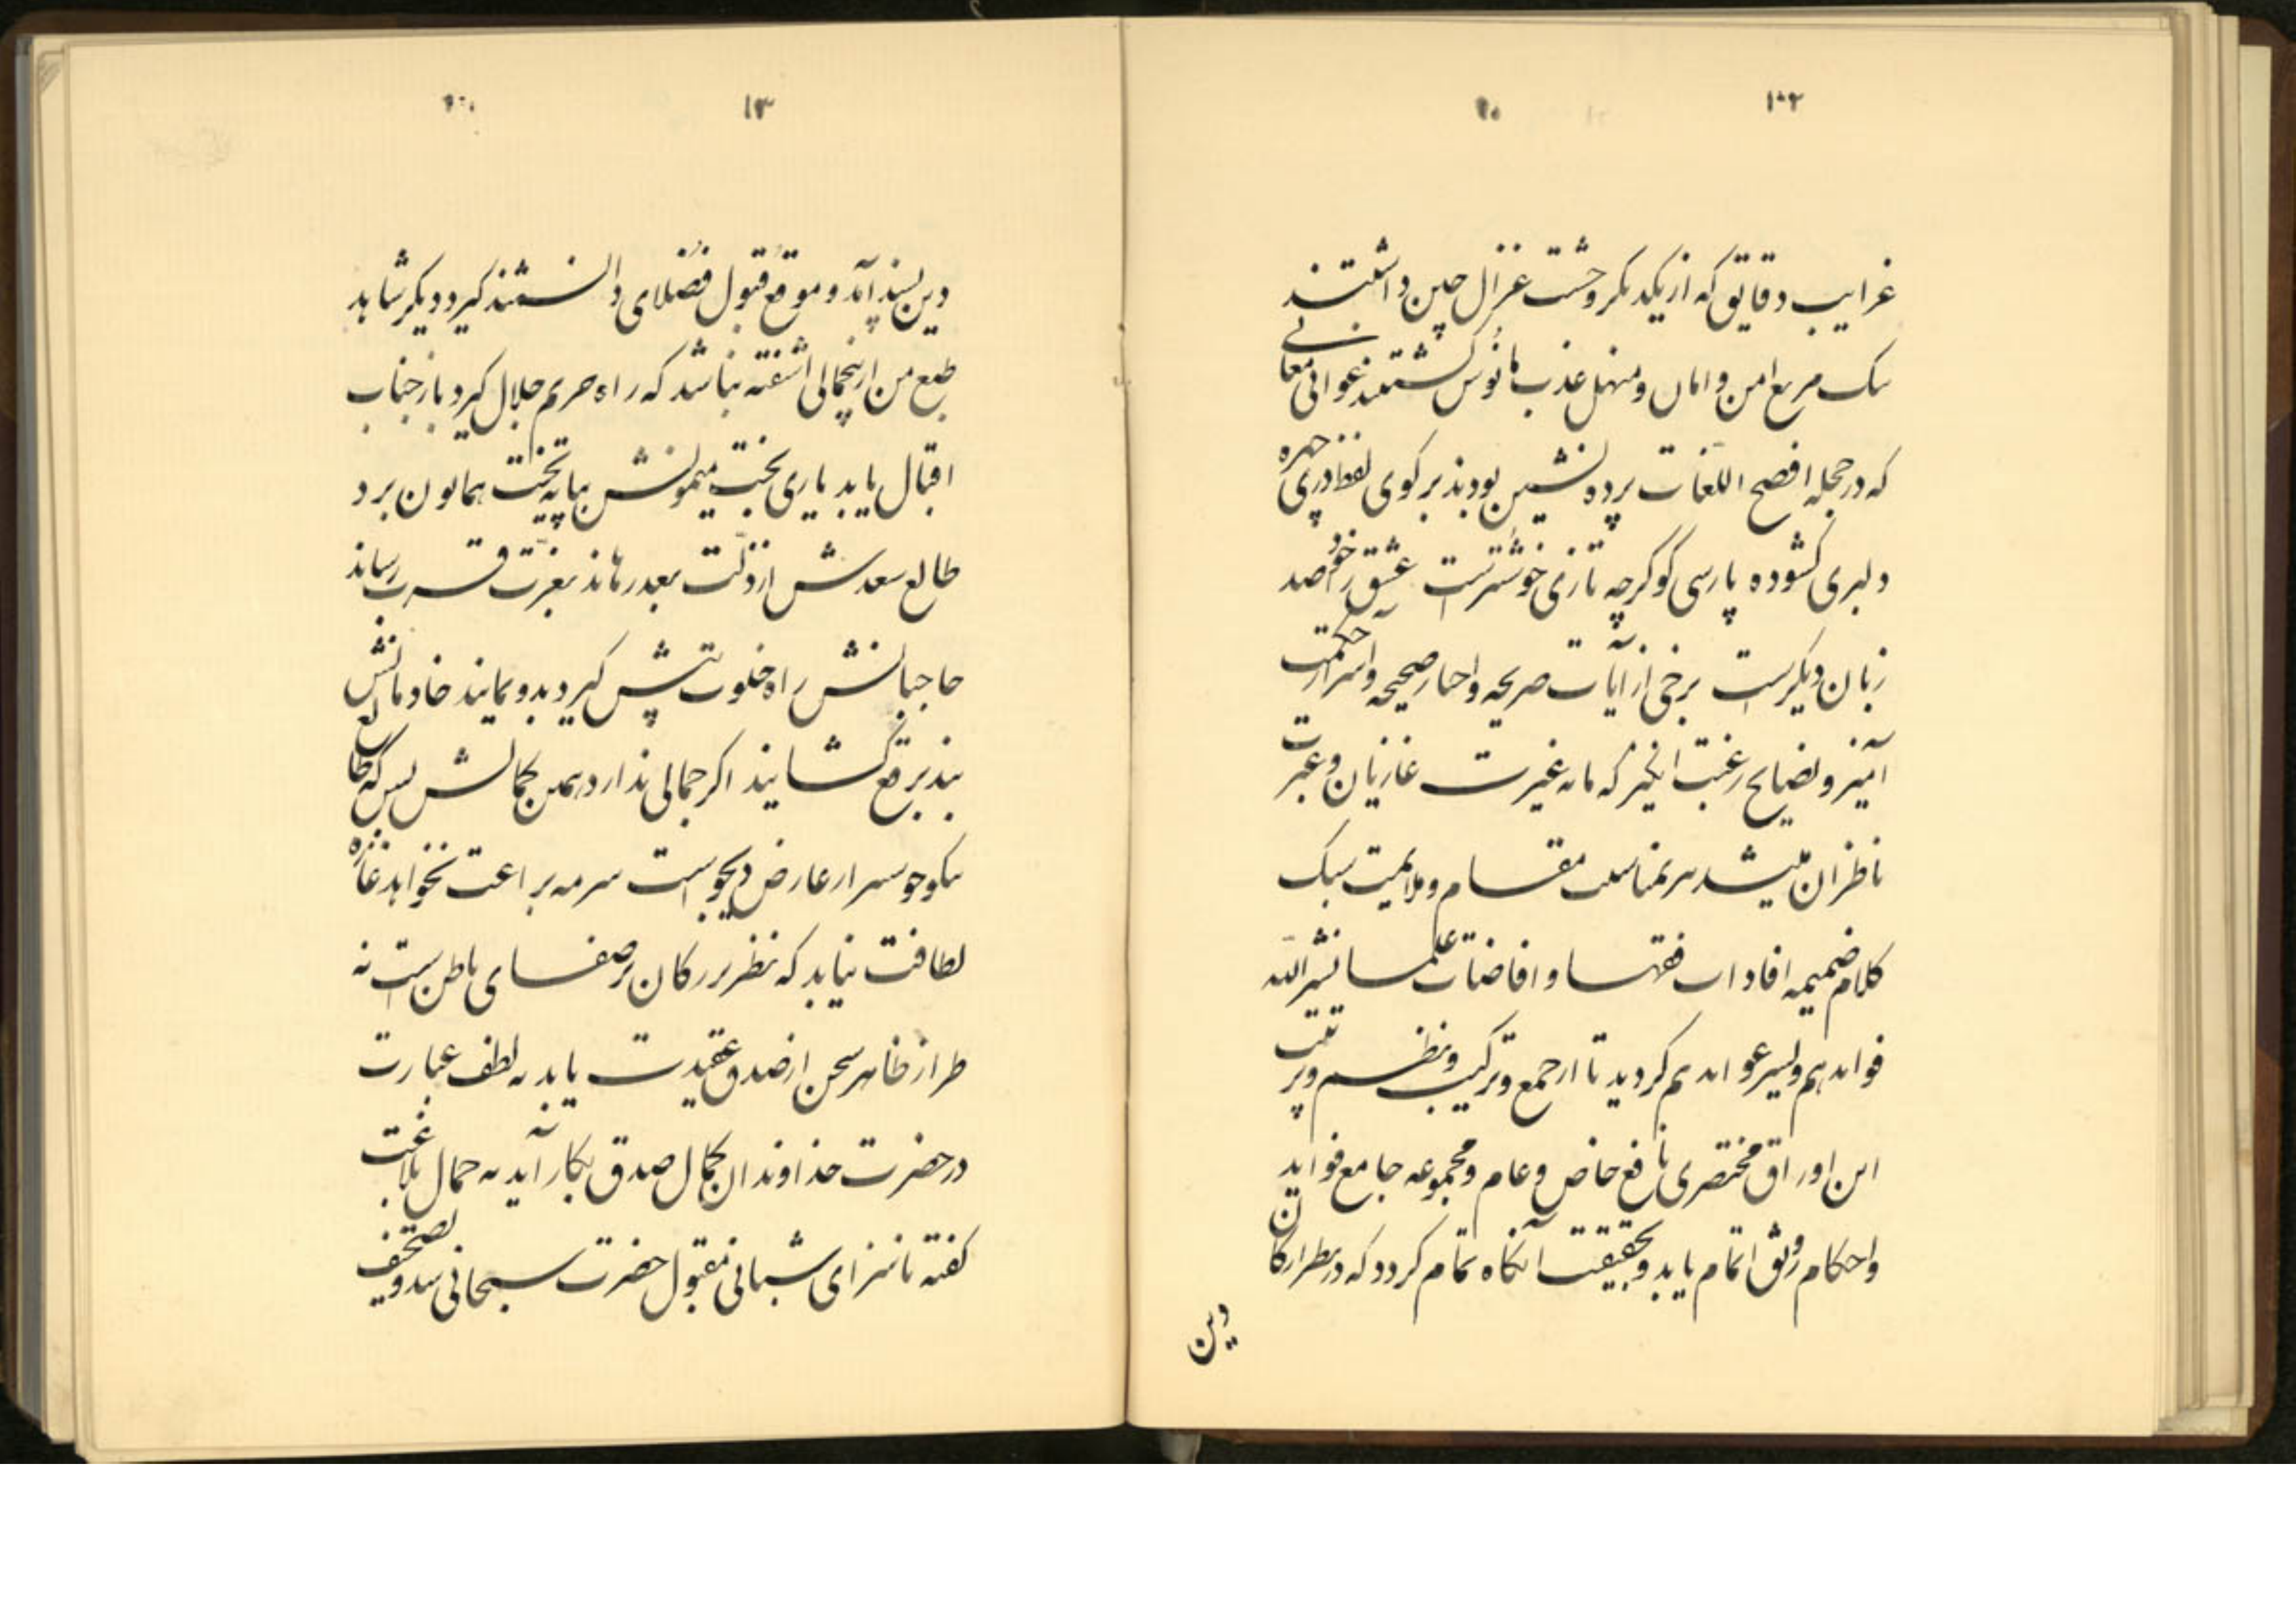 ۱۲
غرایب دقایق که از یکدیکر وحشت غزال چین داشتند
یک مربع امن و امان و منهل عذب مانوس کشتند غوانی معانی
که در حجله افصح اللغات پرده نشین بودند بر کوی لفظ دری چهره
دلبری کشوده پارسی گو گرچه تازی خوشترست عشق را خود صد
زبان دیکرست برخی از آیات صریحه و اخبار صحیحه و اسرار حکمت
آمیز و نصایح رغبت انکیز که مایه غیرت غازیان و عبرت
ناظران میشد بمناسبت مقام و ملایمت سبک
کلام ضمیمه افادات فقها و افاضات علما نشر الله
فوایدهم و یسر عوایدهم کردید تا از جمع و ترکیب و نظم و ترتیب
این اوراق مختصری نافع خاص و عام و مجموعه جامع فواید
و احکام رونق اتمام یابد و بحقیقت آنکاه تمام کردد که در نظر ارکان
دین
۱۳
دین پسند آید و موقع قبول فضلای دانشمند کیرد دیکر شاهد
طبع من از بیجمالی اشفته نباشد که راه حریم جلال کیرد باز جناب
اقبال یابد یاری بخت میمونش بپایه تخت همایون برد
طالع سعدش از ذلت بعد رهاند بعزت قرب رساند
حاجبانش راه خلوت پیش کیرد بدو نمایند خادمانش
بند برقع کشایند اکر جمالی ندارد همین کمالش بس که طالع
نیکو جوست از عارض دیجو است سرمه براعت نخواهد غازه
لطافت نیابد که نظر بزرکان بر صفای باطن است نه
طراز ظاهر سخن از صدق عقیدت باید نه لطف عبارت
در حضرت خداوندان کمال صدق بکار آید نه جمال بلاغت
کفته ناسزای شبانی مقبول حضرت سبحانی شد و تصحیف